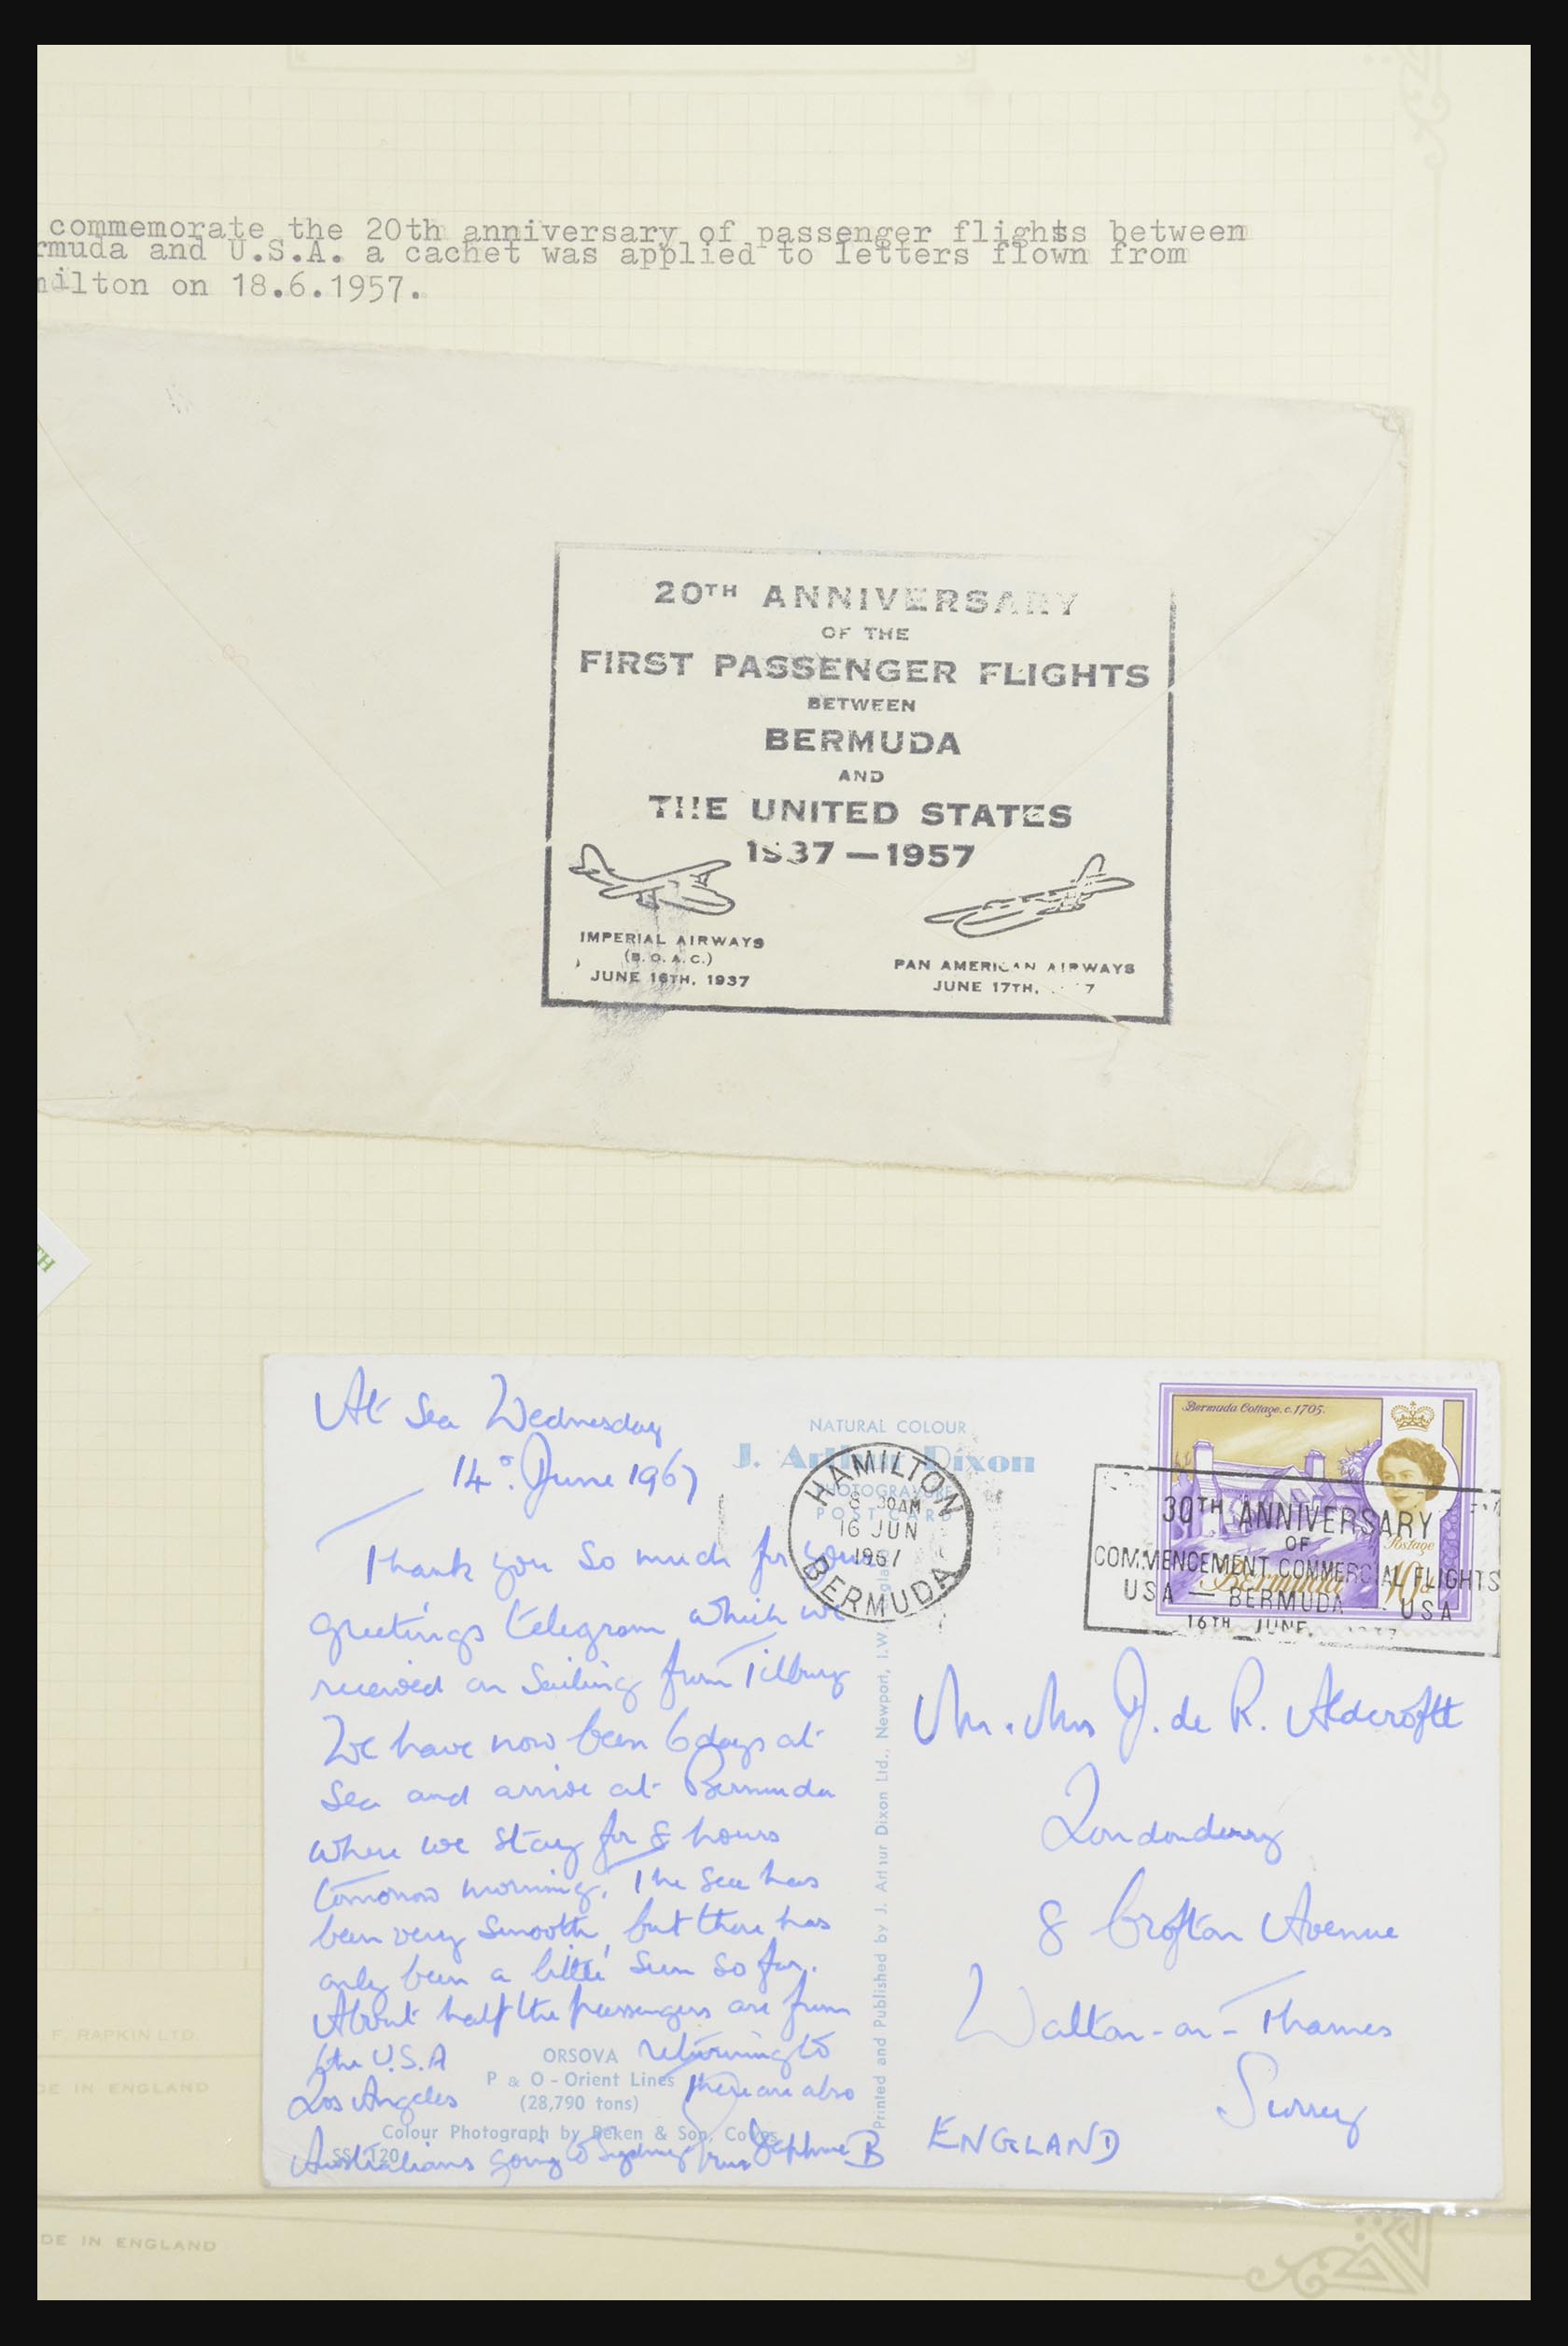 commemorate the 20th anniversary of passenger flights between
rmuda and U.S.A. a cachet was applied to letters flown from
milton on 18.6.1957.
20TH ANNIVERSARY
OF THE
FIRST PASSENGER FLIGHTS
BETWEEN
BERMUDA
AND
THE UNITED STATES
1937—1957
IMPERIAL AIRWAYS
(B.O.A.C.)
JUNE 16TH, 1937
PAN AMERICAN AIRWAYS
JUNE 17TH, 7
TH
At Sea Wednesday
14° June 1967
Thank you so much for your
greetings telegram which we
received on sailing from Tilbury
We have now been 6 days at
sea and arrive at Bermuda
where we stay for 8 hours
tomorrow morning. The sea has
been very smooth, but there has
only been a little sun so far.
About half the passengers are from
the U.S.A returning to
Los Angeles There are also
Australians going to Sydney from Daphne B
NATURAL COLOUR
J. Arthur Dixon
PHOTOGRAVURE
POST CARD
HAMILTON
8 30AM
16 JUN
1967
BERMUDA
Bermuda Cottage, c.1705.
Postage
Bermuda 10d
30TH ANNIVERSARY
OF
COMMENCEMENT COMMERCIAL FLIGHTS
USA — BERMUDA — USA
16TH JUNE,
Mr. Mrs J. de R. Aldcroftt
Londonderry
8 Crofton Avenue
Walton-on-Thames
Surrey
ENGLAND
Printed and Published by J. Arthur Dixon Ltd., Newport, I.W. England
ORSOVA
P & O - Orient Lines
(28,790 tons)
Colour Photograph by Beken & Son, Cowes
.F. RAPKIN LTD.
DE IN ENGLAND
DE IN ENGLAND